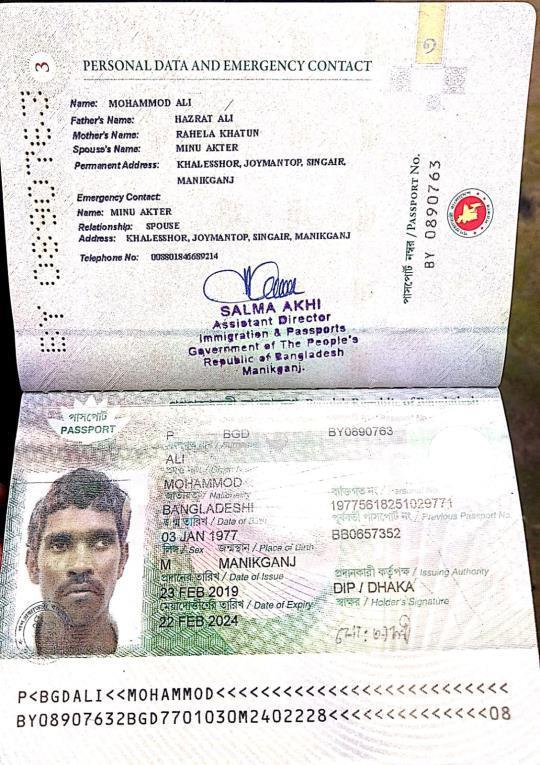 3
PERSONAL DATA AND EMERGENCY CONTACT
Name: MOHAMMOD ALI
Father's Name: HAZRAT ALI
Mother's Name: RAHELA KHATUN
Spouse's Name: MINU AKTER
Permanent Address: KHALESSHOR, JOYMANTOP, SINGAIR,
MANIKGANJ
Emergency Contact:
Name: MINU AKTER
Relationship: SPOUSE
Address: KHALESSHOR, JOYMANTOP, SINGAIR, MANIKGANJ
Telephone No: 008801846689214
SALMA AKHI
Assistant Director
Immigration & Passports
Government of The People's
Republic of Bangladesh
Manikganj.
BY 0890763
পাসপোর্ট নম্বর / PASSPORT No.
BY 0890763
পাসপোর্ট
PASSPORT
P BGD BY0890763
ALI
MOHAMMOD
জাতীয়তা / Nationality ব্যক্তিগত নং /
BANGLADESHI 19775618251029771
জন্ম তারিখ / Date of Birth পূর্ববর্তী পাসপোর্ট নং / Previous Passport No.
03 JAN 1977 BB0657352
লিঙ্গ / Sex জন্মস্থান / Place of Birth
M MANIKGANJ প্রদানকারী কর্তৃপক্ষ / Issuing Authority
প্রদানের তারিখ / Date of Issue DIP / DHAKA
23 FEB 2019 স্বাক্ষর / Holder's Signature
মেয়াদোত্তীর্ণের তারিখ / Date of Expiry
22 FEB 2024 মোঃ আলী
P<BGDALI<<MOHAMMOD<<<<<<<<<<<<<<<<<<<<<<<<<<
BY08907632BGD7701030M2402228<<<<<<<<<<<<<<08